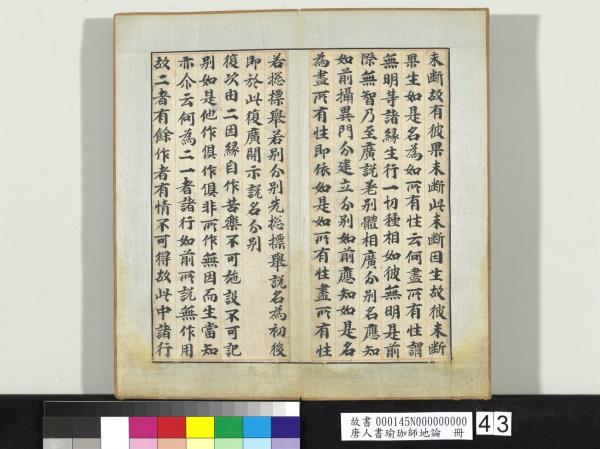 未断故有彼果未断此未断因生故彼未断
果生如是名為如所有性云何盡所有性謂
無明等諸緣生行一切種相如彼無明是前
際無智乃至廣說差別體相廣分別名應知
如前攝異門分建立分別如前應知如是名
為盡所有性即依如是如所有性盡所有性
若捴摽舉若別分別先捴摽舉說名為初後
即於此復廣開示說名分別
復次由二因緣自作苦樂不可施設不可記
別如是他作俱作俱非所作無因而生當知
亦尒云何為二一者諸行如前所說無作用
故二者有餘作者有情不可得故此中諸行
故書 000145N000000000
唐人書瑜珈師地論 冊
43